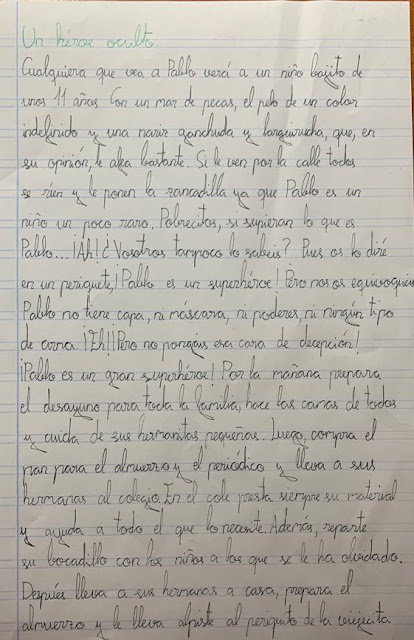 Un héroe oculto.
Cualquiera que vea a Pablo verá a un niño bajito de
unos 11 años. Con un mar de pecas, el pelo de un color
indefinido y una nariz ganchuda y larguirucha, que, en
su opinión, le afea bastante. Si le ven por la calle todos
se ríen y le ponen la zancadilla ya que Pablo es un
niño un poco raro. Pobrecitos, si supieran lo que es
Pablo... ¡Ah! ¿Vosotros tampoco lo sabéis? Pues os lo diré
en un periquete, ¡Pablo es un superhéroe! Pero no os equivoquéis
Pablo no tiene capa, ni máscara, ni poderes, ni ningún tipo
de arma. ¡Eh! ¡Pero no pongáis esa cara de decepción!
¡Pablo es un gran superhéroe! Por la mañana prepara
el desayuno para toda la familia, hace las camas de todos
y cuida de sus hermanitas pequeñas. Luego, compra el
pan para el almuerzo y el periódico y lleva a sus
hermanas al colegio. En el cole presta siempre su material
y ayuda a todo el que lo necesite. Además, reparte
su bocadillo con los niños a los que se le ha olvidado.
Después lleva a sus hermanas a casa, prepara el
almuerzo y le lleva alpiste al periquito de la viejecita